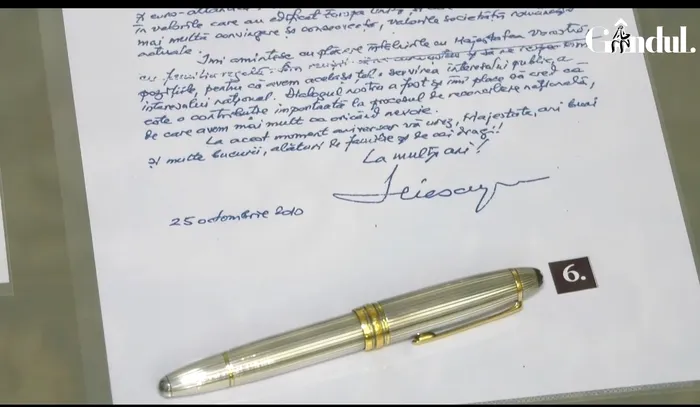 și euro-atlantică
în valorile care au edificat Europa Unită și
mai multă convingere și consecvență, valorile societății românești
actuale.
Îmi amintesc cu plăcere întâlnirile cu Majestatea Voastră
cu familia regală. Din
pozițiile, pentru că avem același țel: servirea interesului public, a
interesului național. Dialogul nostru a fost și îmi place să cred că
este o contribuție importantă la procesul de reconciliere națională,
de care avem mai mult ca oricând nevoie.
La acest moment aniversar vă urez, Majestate, ani buni
și multe bucurii, alături de familie și de cei dragi!
La mulți ani!
25 octombrie 2010
6.
Gândul.